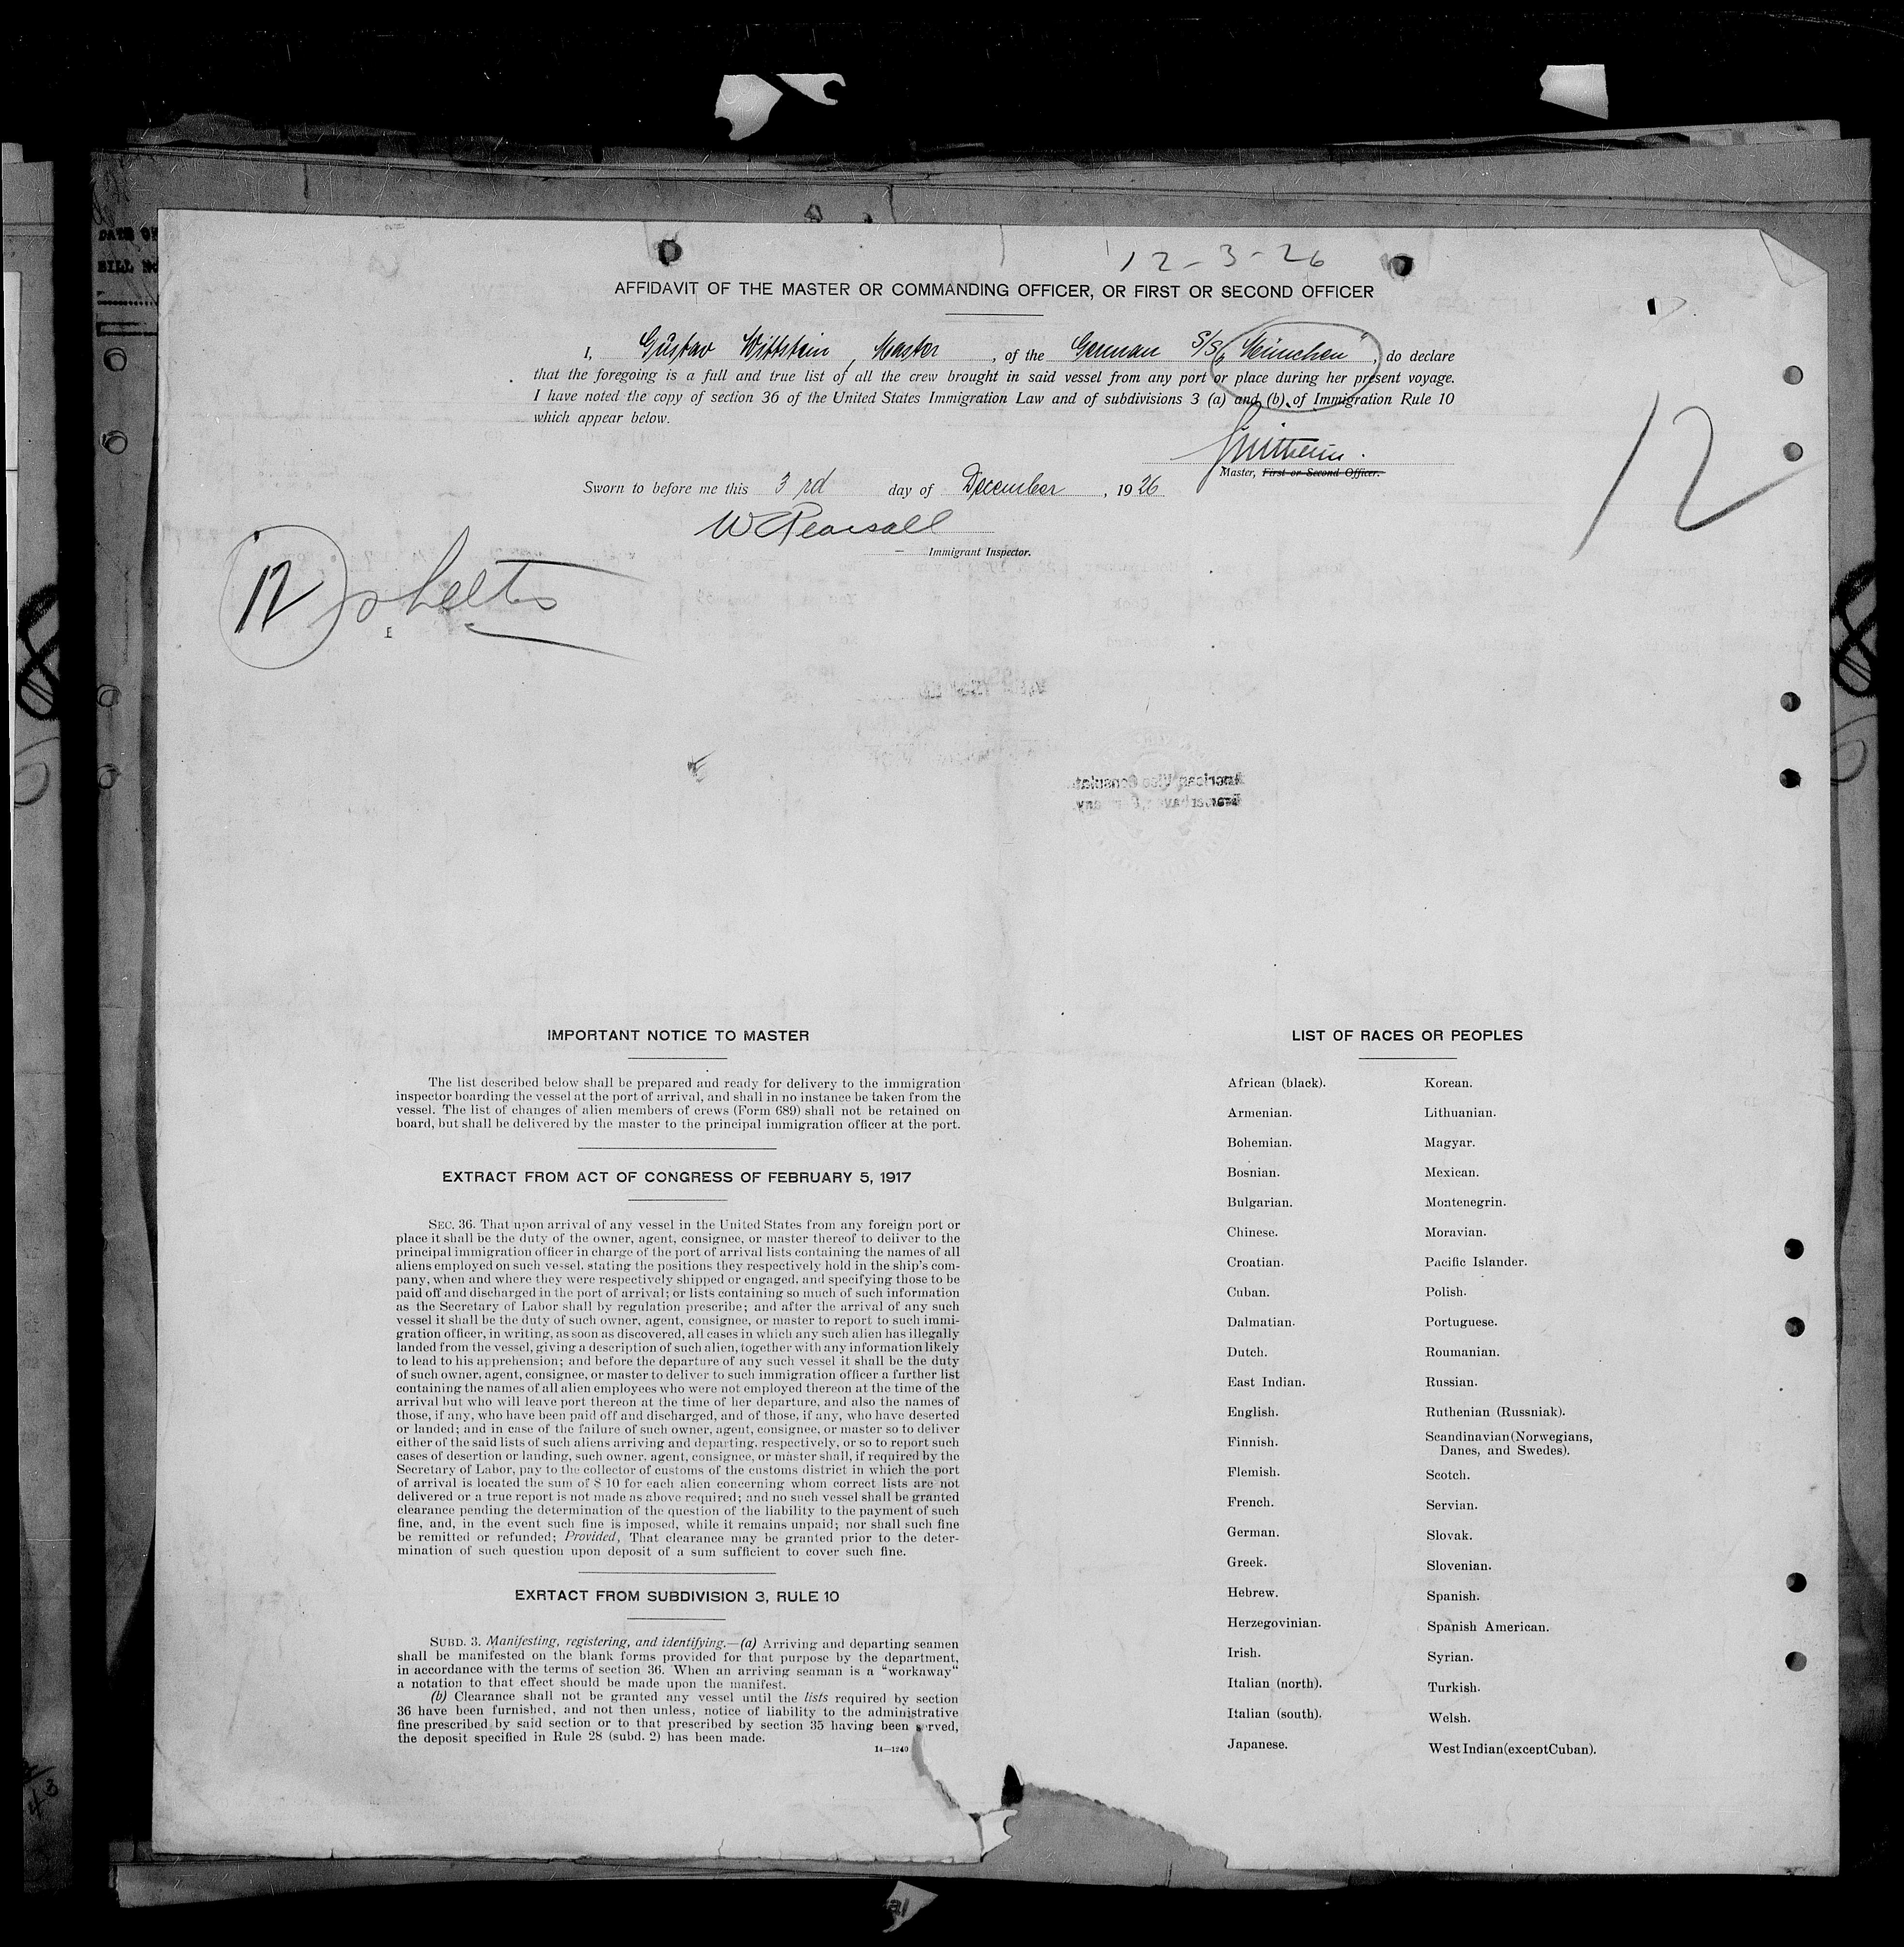 DATE OF
BILL No
12-3-26
AFFIDAVIT OF THE MASTER OR COMMANDING OFFICER, OR FIRST OR SECOND OFFICER
I, Gustav Wittstein, Master, of the German S/S „München", do declare
that the foregoing is a full and true list of all the crew brought in said vessel from any port or place during her present voyage.
I have noted the copy of section 36 of the United States Immigration Law and of subdivisions 3 (a) and (b) of Immigration Rule 10
which appear below.
12
Master, First or Second Officer.
Sworn to before me this 3 rd day of December, 1926
W Pearsall
Immigrant Inspector.
12 sheets
American Vice Consulat
Bremerhaven, Germany
IMPORTANT NOTICE TO MASTER
The list described below shall be prepared and ready for delivery to the immigration
inspector boarding the vessel at the port of arrival, and shall in no instance be taken from the
vessel. The list of changes of alien members of crews (Form 689) shall not be retained on
board, but shall be delivered by the master to the principal immigration officer at the port.
EXTRACT FROM ACT OF CONGRESS OF FEBRUARY 5, 1917
SEC. 36. That upon arrival of any vessel in the United States from any foreign port or
place it shall be the duty of the owner, agent, consignee, or master thereof to deliver to the
principal immigration officer in charge of the port of arrival lists containing the names of all
aliens employed on such vessel, stating the positions they respectively hold in the ship's com-
pany, when and where they were respectively shipped or engaged, and specifying those to be
paid off and discharged in the port of arrival; or lists containing so much of such information
as the Secretary of Labor shall by regulation prescribe; and after the arrival of any such
vessel it shall be the duty of such owner, agent, consignee, or master to report to such immi-
gration officer, in writing, as soon as discovered, all cases in which any such alien has illegally
landed from the vessel, giving a description of such alien, together with any information likely
to lead to his apprehension; and before the departure of any such vessel it shall be the duty
of such owner, agent, consignee, or master to deliver to such immigration officer a further list
containing the names of all alien employees who were not employed thereon at the time of the
arrival but who will leave port thereon at the time of her departure, and also the names of
those, if any, who have been paid off and discharged, and of those, if any, who have deserted
or landed; and in case of the failure of such owner, agent, consignee, or master so to deliver
either of the said lists of such aliens arriving and departing, respectively, or so to report such
cases of desertion or landing, such owner, agent, consignee, or master shall, if required by the
Secretary of Labor, pay to the collector of customs of the customs district in which the port
of arrival is located the sum of $ 10 for each alien concerning whom correct lists are not
delivered or a true report is not made as above required; and no such vessel shall be granted
clearance pending the determination of the question of the liability to the payment of such
fine, and, in the event such fine is imposed, while it remains unpaid; nor shall such fine
be remitted or refunded; Provided, That clearance may be granted prior to the deter-
mination of such question upon deposit of a sum sufficient to cover such fine.
EXRTACT FROM SUBDIVISION 3, RULE 10
SUBD. 3. Manifesting, registering, and identifying.—(a) Arriving and departing seamen
shall be manifested on the blank forms provided for that purpose by the department,
in accordance with the terms of section 36. When an arriving seaman is a "workaway"
a notation to that effect should be made upon the manifest.
(b) Clearance shall not be granted any vessel until the lists required by section
36 have been furnished, and not then unless, notice of liability to the administrative
fine prescribed by said section or to that prescribed by section 35 having been served,
the deposit specified in Rule 28 (subd. 2) has been made.
14—1240
LIST OF RACES OR PEOPLES
African (black).
Armenian.
Bohemian.
Bosnian.
Bulgarian.
Chinese.
Croatian.
Cuban.
Dalmatian.
Dutch.
East Indian.
English.
Finnish.
Flemish.
French.
German.
Greek.
Hebrew.
Herzegovinian.
Irish.
Italian (north).
Italian (south).
Japanese.
Korean.
Lithuanian.
Magyar.
Mexican.
Montenegrin.
Moravian.
Pacific Islander.
Polish.
Portuguese.
Roumanian.
Russian.
Ruthenian (Russniak).
Scandinavian (Norwegians,
Danes, and Swedes).
Scotch.
Servian.
Slovak.
Slovenian.
Spanish.
Spanish American.
Syrian.
Turkish.
Welsh.
West Indian (except Cuban).